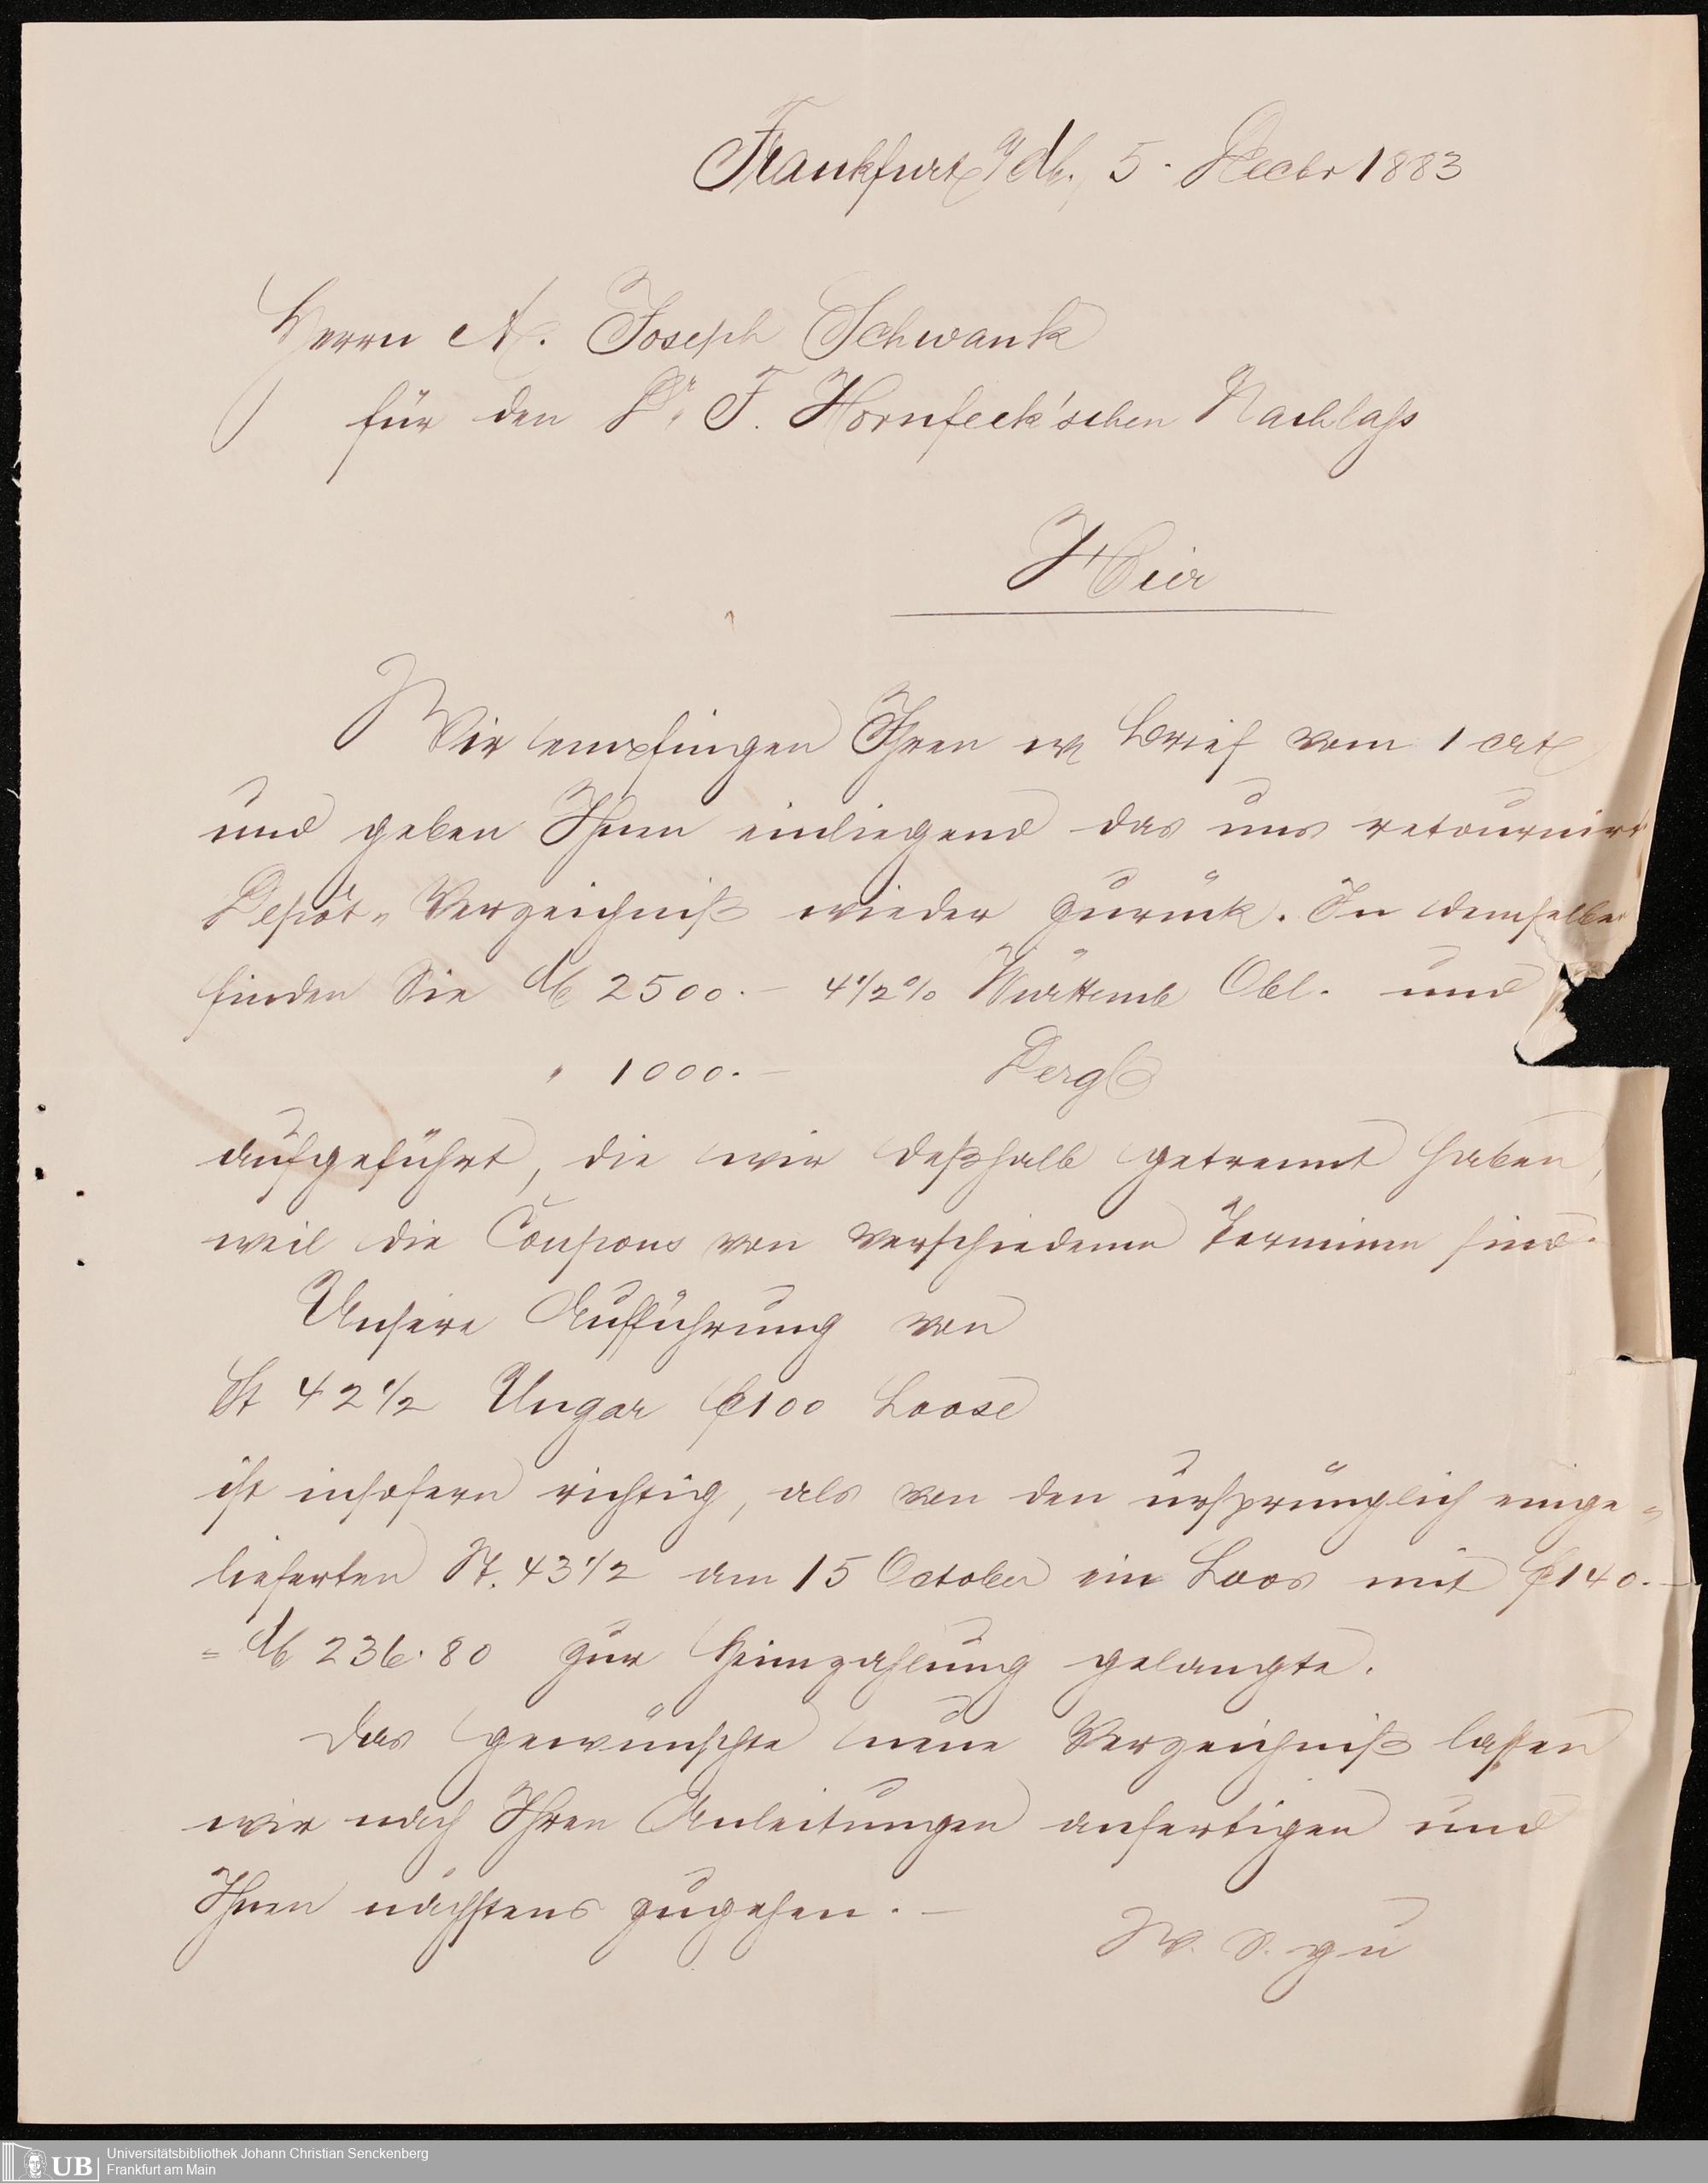 Frankfurt a/M., 5. Decbr 1883
Herrn A. Joseph Schwank
für den Dr. F. Hornfeck'schen Nachlaß
Hier
Wir empfingen Ihren w Brief vom 1 crt
und geben Ihnen einliegend das uns retournirt
Depôt-Verzeichniß wieder zurück. In demselben
finden Sie M 2500.– 4 1/2 % Württemb Obl. und
" 1000.– Dergl
aufgeführt, die wir deßhalb getrennt haben,
weil die Coupons von verschiedenen Terminen sind.
Unsere Aufführung von
St 42 1/2 Ungar f 100 Loose
ist insofern richtig, als von den ursprünglich einge-
lieferten St. 43 1/2 am 15 October ein Loos mit f 140.–
= M 236.80 zur Heimzahlung gelangte.
Das gewünschte neue Verzeichniß lassen
wir nach Ihren Anleitungen anfertigen und
Ihnen nächstens zugehen. –
Universitätsbibliothek Johann Christian Senckenberg
UB Frankfurt am Main